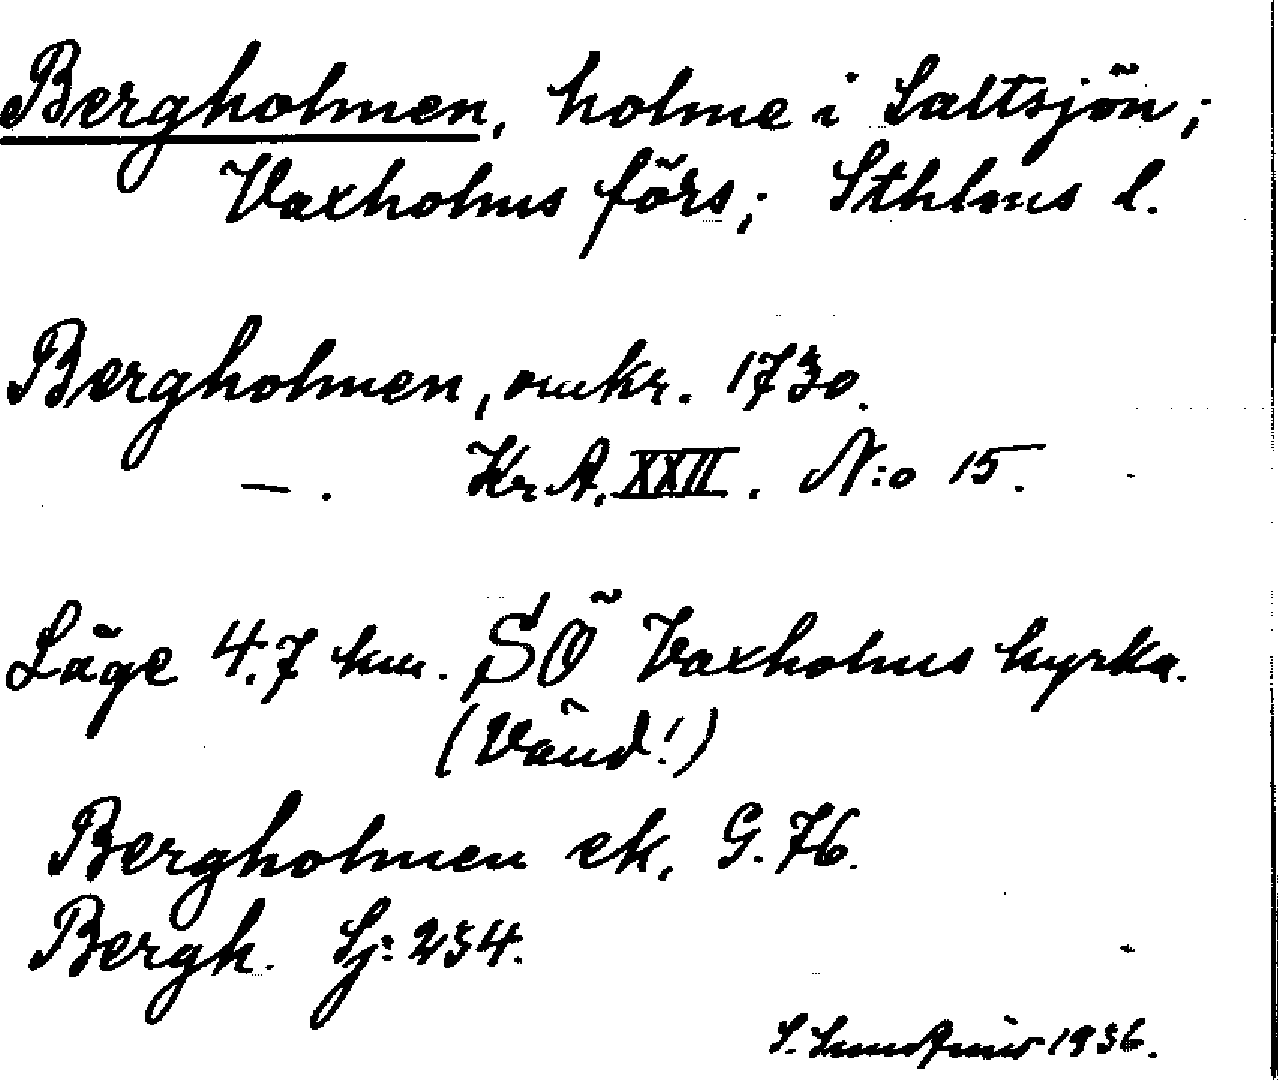 Bergholmen, holme i Saltsjön;
Vaxholms förs; Sthlms l.
Bergholmen, omkr. 1730.
—. Kr A. XXII. N:o 15.
Läge 4.7 km. SÖ Vaxholms kyrka.
(Vänd!)
Bergholmen ek. G. 76.
Bergh. Sj: 234.
S. 1936.